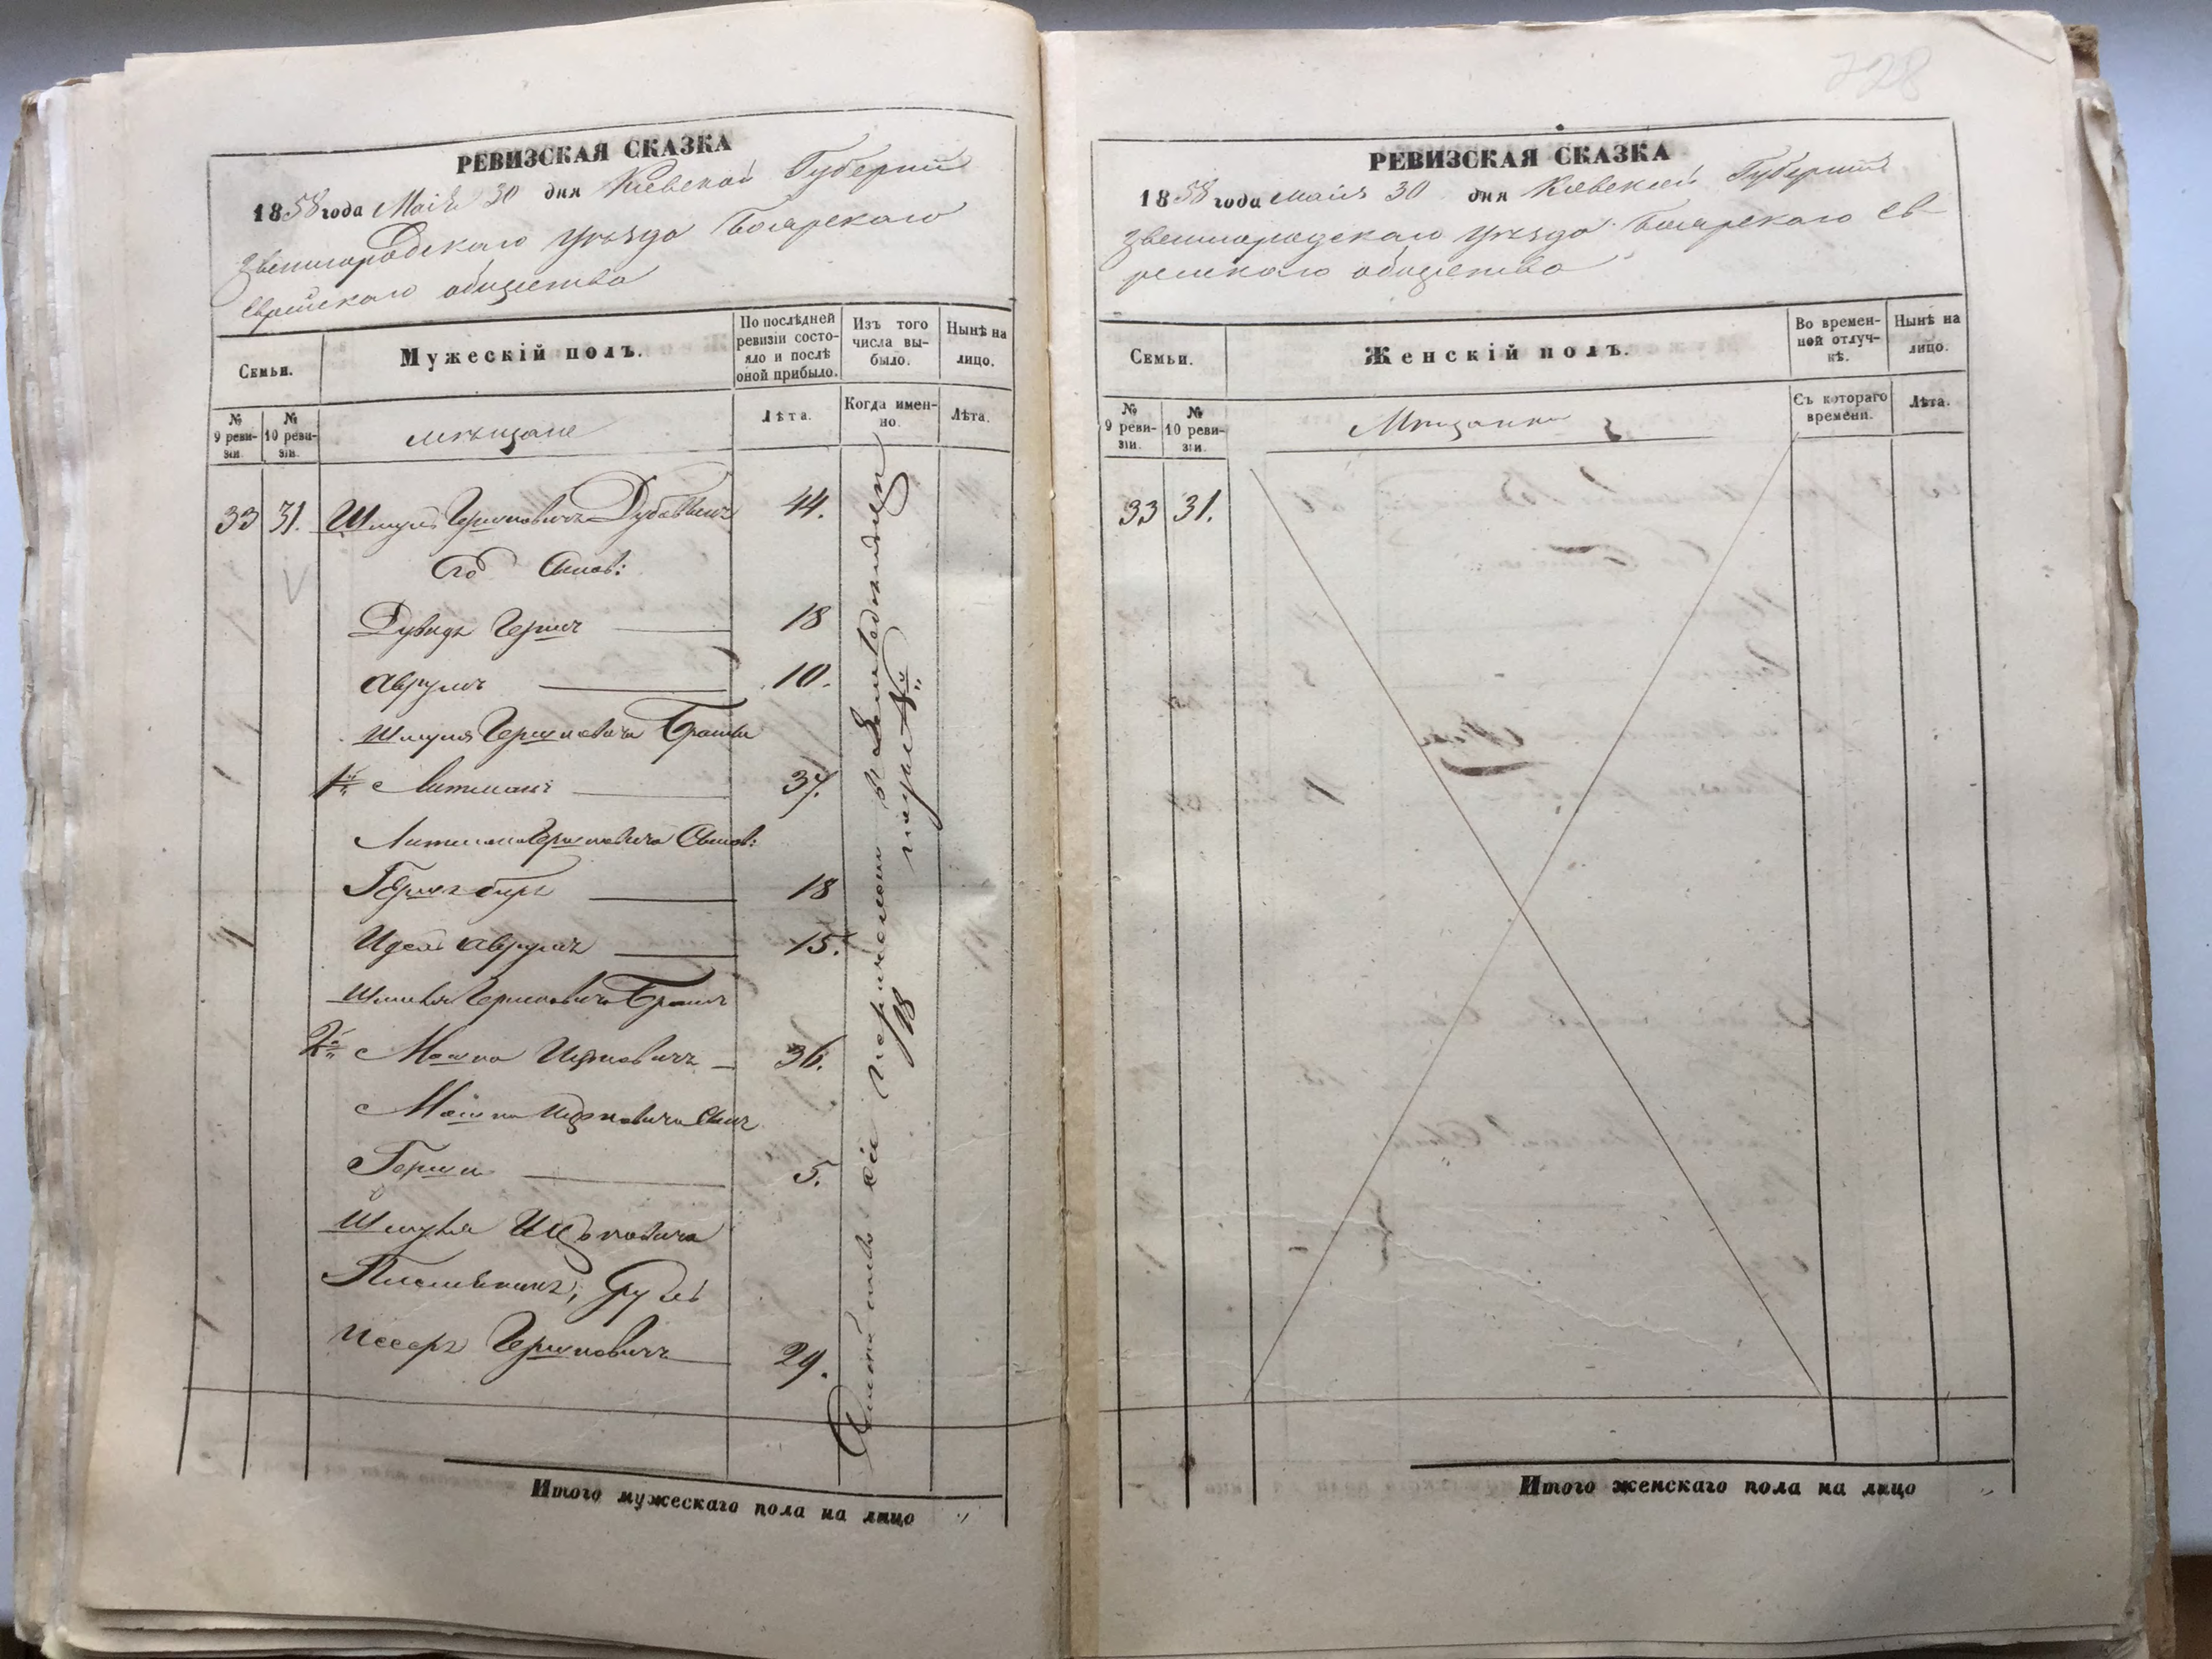 РЕВИЗСКАЯ СКАЗКА
1858 года Маія 30 дня Кіевской Губерніи
Звенигородскаго уѣзда Боярскаго
Еврейскаго общества
Семьи.
Мужескій полъ.
По послѣдней ревизіи состояло и послѣ оной прибыло.
Изъ того числа выбыло.
Нынѣ на лицо.
№ 9 ревизіи.
№ 10 ревизіи.
мѣщане
Лѣта.
Когда именно.
Лѣта.
33 31. Шмуль Гершковичъ 44.
Его Сынов:
Дувидъ Гершъ 18
Аврумъ 10.
Шмуля Гершковича Братья
1й Литманъ 37.
Литмана Гершковича Сынов:
Гершъ беръ 18
Идель Аврумъ 15.
Шмуля Гершковича Братъ
2й Мошко Ицковичъ 36.
Мошка Ицковича Сынъ
Гершко 5.
Шмуля Ицковича
Племянникъ,
Иссеръ Гершковичъ 29.
перечислены в Земледѣльцы
18
728
РЕВИЗСКАЯ СКАЗКА
1858 года маія 30 дня Кіевской Губерніи
Звенигородскаго уѣзда Боярскаго Ев-
рейскаго общества
Семьи.
Женскій полъ.
Во временной отлучкѣ.
Нынѣ на лицо.
№ 9 ревизіи.
№ 10 ревизіи.
Мѣщанки
Съ котораго времени.
Лѣта.
33 31.
Итого мужескаго пола на лицо "
Итого женскаго пола на лицо "